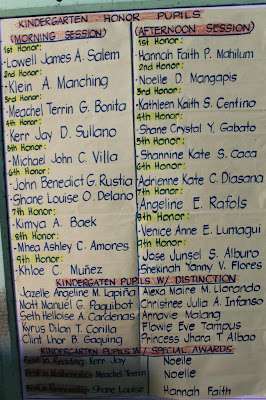 KINDERGARTEN HONOR PUPILS
(MORNING SESSION)
1st Honor:
Lowell James A. Salem
2nd Honor:
Klein A. Manching
3rd Honor:
Meachel Terrin G. Bonita
4th Honor:
Kerr Jay D. Sullano
5th Honor:
Michael John C. Villa
6th Honor:
John Benedict G. Rustia
Shane Louise O. Delano
7th Honor:
Kimya A. Baek
8th Honor:
Mhea Ashley C. Amores
9th Honor:
Khloe C. Muñez
(AFTERNOON SESSION)
1st Honor:
Hannah Faith P. Mahilum
2nd Honor:
Noelle D. Mangapis
3rd Honor:
Kathleen Kaith S. Centino
4th Honor:
Shane Crystal Y. Gabato
5th Honor:
Shannine Kate S. Caca
6th Honor:
Adrienne Kate C. Diasana
7th Honor:
Angeline E. Rafols
8th Honor:
Venice Anne E. Lumagui
9th Honor:
Jose Junsel S. Alburo
Shekinah Yanny V. Flores
KINDERGARTEN PUPILS W/ DISTINCTION
Jazelle Angeline M. Lapiña
Matt Manuel G. Paquibot
Seth Helloise A. Cardenas
Kyrus Dilan T. Corilla
Clint Lhor B. Gaquing
Alexa Maire M. Llanando
Christinee Julia A. Infanso
Annavie Malang
Flowie Eve Tampus
Princess Jhara T. Albao
KINDERGARTEN PUPILS W/ SPECIAL AWARDS
Best in Reading: Kerr Jay
Noelle
Best in Mathematics: Meachel Terrin
Noelle
Best in Shane Louise
Hannah Faith